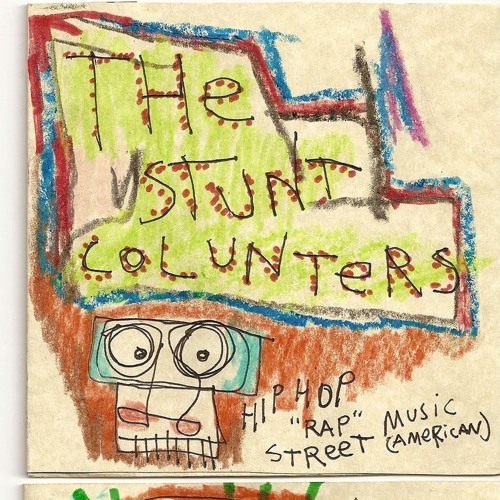 THe
STUNT
COLUNTeRS
HIP HOP
"RAP" MUSIC
STREET (AMERICAN)